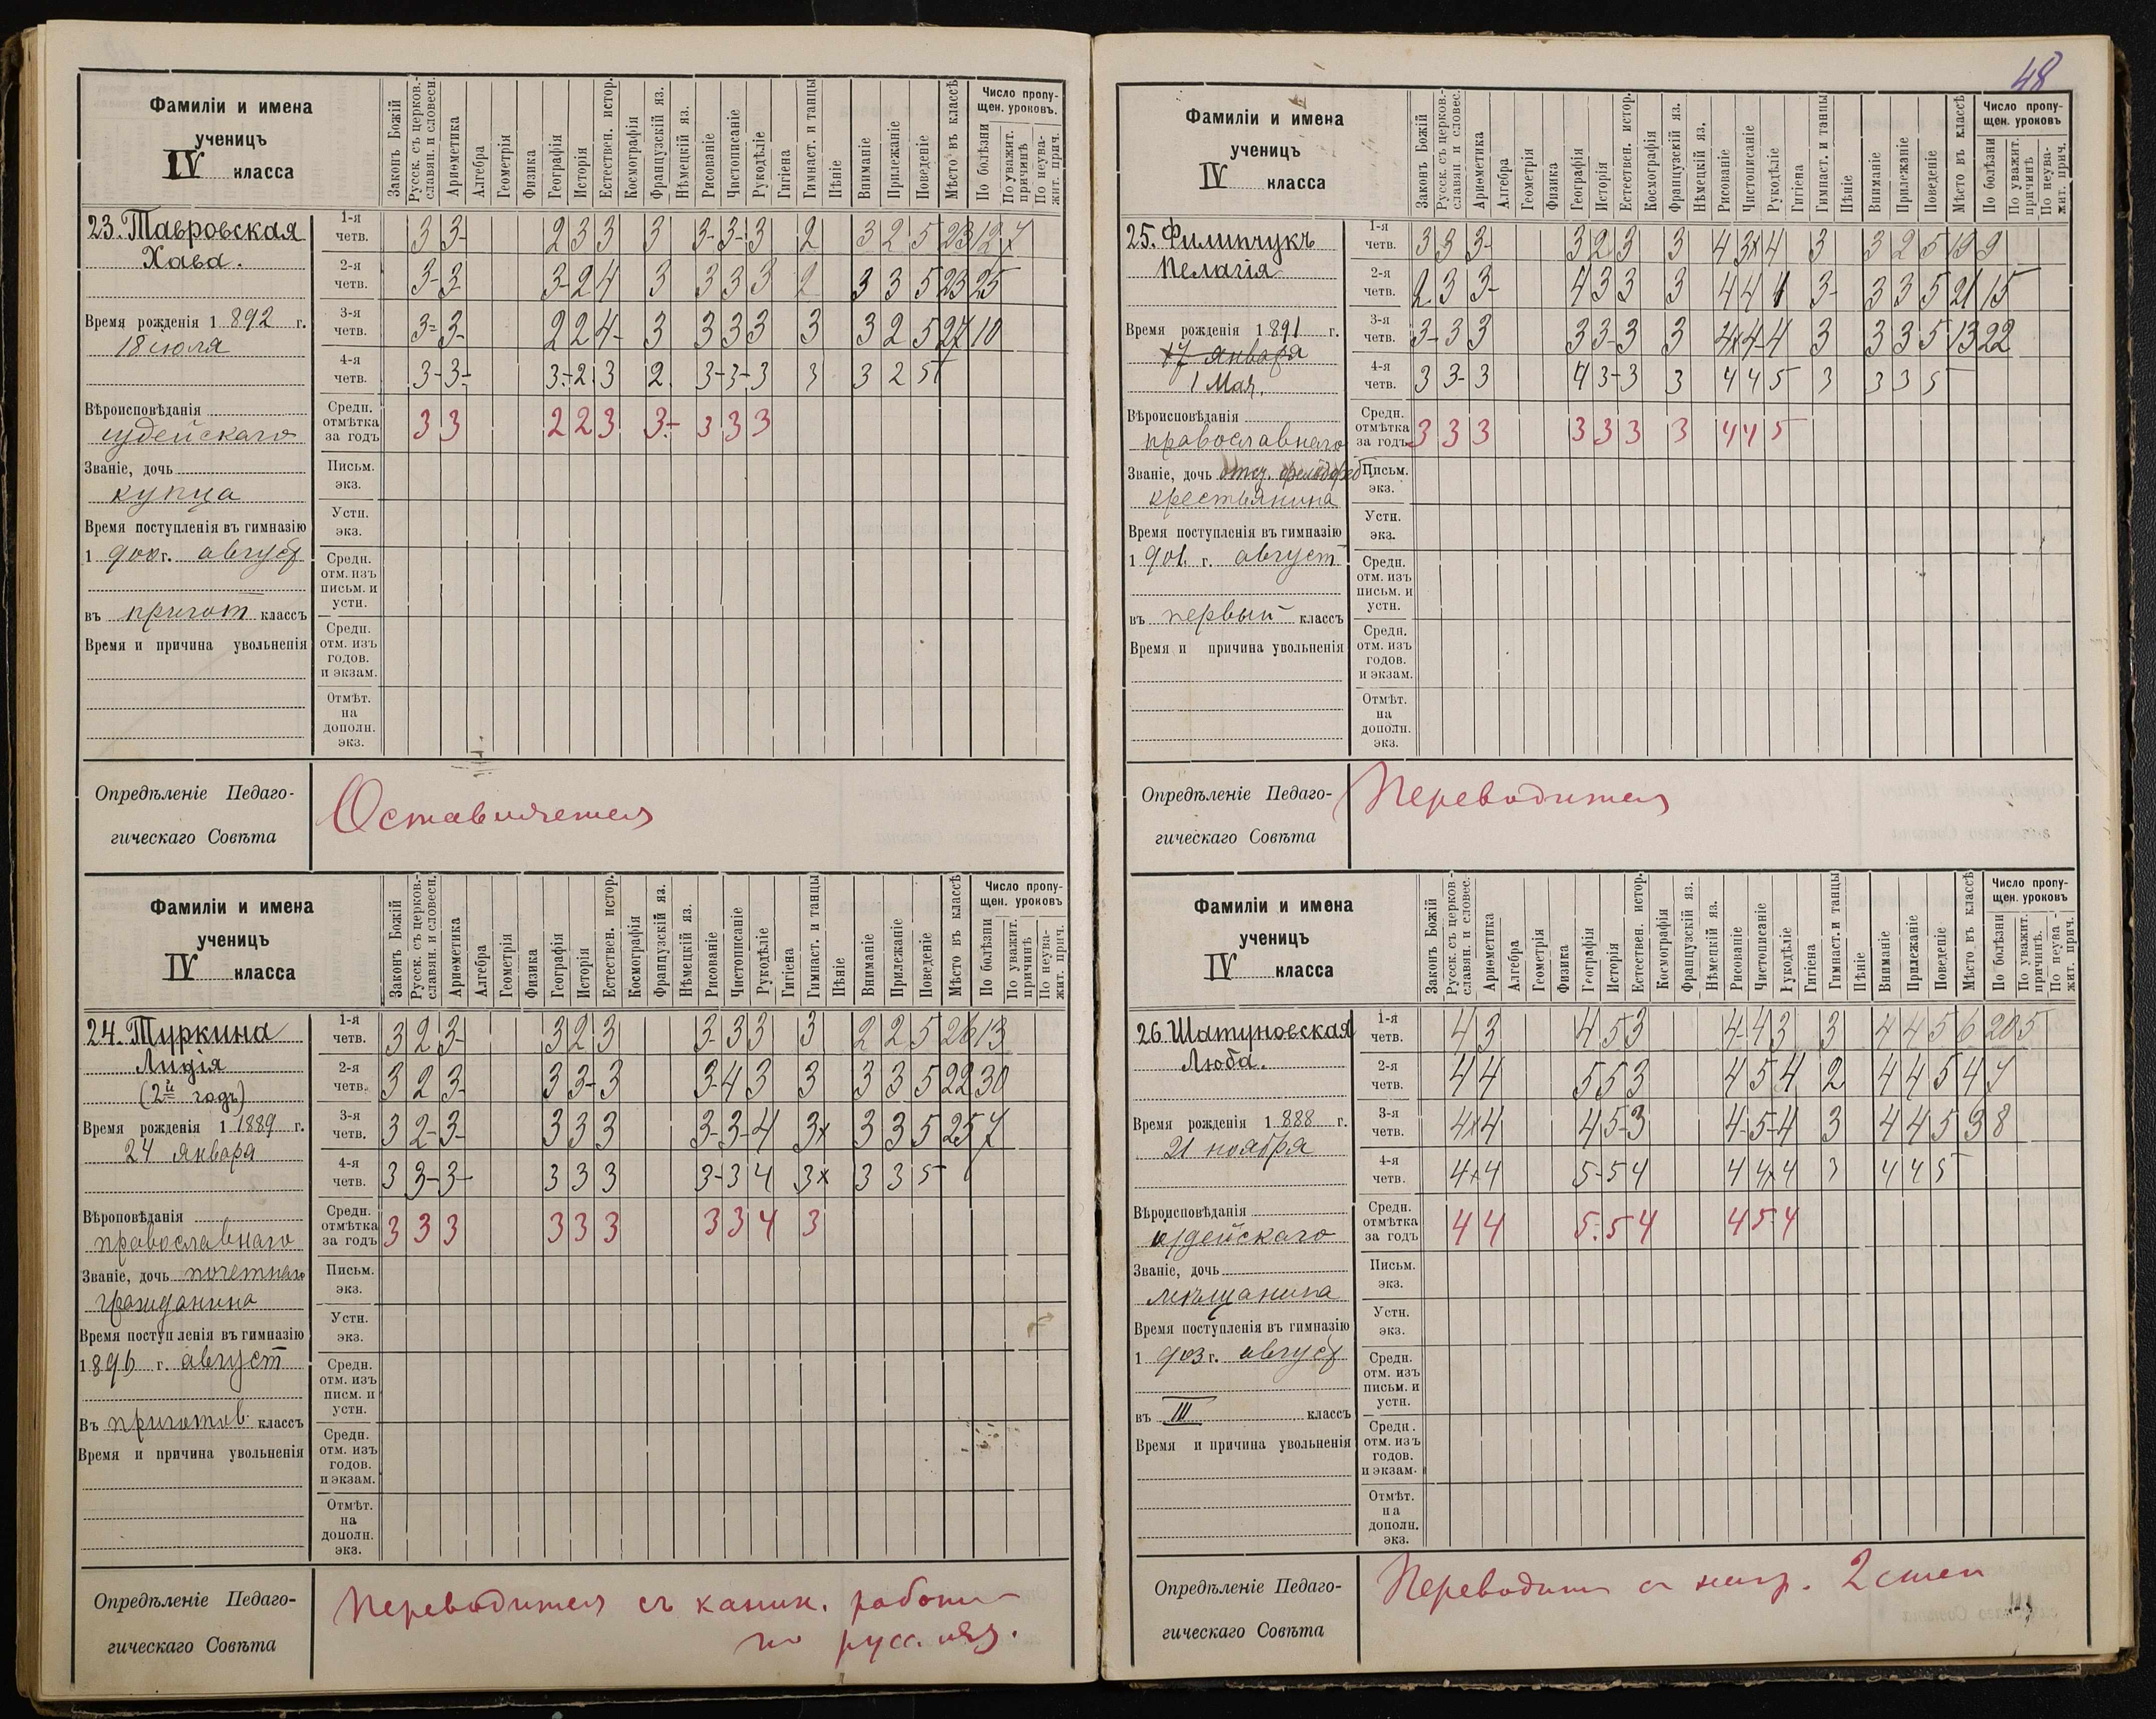 48
Фамиліи и имена
ученицъ
IV класса
Законъ Божій
Русск. съ церков.-
славян. и словесн.
Ариѳметика
Алгебра
Геометрія
Физика
Географія
Исторія
Естествен. истор.
Космографія
Французскій яз.
Нѣмецкій яз.
Рисованіе
Чистописаніе
Рукодѣліе
Гигіена
Гимнаст. и танцы
Пѣніе
Вниманіе
Прилежаніе
Поведеніе
Мѣсто въ классѣ
Число пропу-
щен. уроковъ.
По болѣзни
По уважит.
причинѣ
По неува-
жит. прич.
23. Тавровская
Хава.
Время рожденія 1892 г.
18 июля
Вѣроисповѣданія
иудейскаго
Званіе, дочь
купца
Время поступленія въ гимназію
1900 г. август
въ пригот классъ
Время и причина увольненія
1-я четв. 3 3- 2 3 3 3 3- 3- 3 2 3 2 5 23 12 7
2-я четв. 3- 3- 3- 2 4 3 3 3 3 2 3 3 5 23 25
3-я четв. 3= 3- 2 2 4- 3 3 3 3 3 3 2 5 27 10
4-я четв. 3- 3- 3- 2 3 2 3- 3- 3 3 3 2 5
Средн. отмѣтка за годъ 3 3 2 2 3 3- 3 3 3
Письм. экз.
Устн. экз.
Средн. отм. изъ письм. и устн.
Средн. отм. изъ годов. и экзам.
Отмѣт. на дополн. экз.
Опредѣленіе Педаго-
гическаго Совѣта
Оставляется
Фамиліи и имена
ученицъ
IV класса
Законъ Божій
Русск. съ церков.-
славян. и словесн.
Ариѳметика
Алгебра
Геометрія
Физика
Географія
Исторія
Естествен. истор.
Космографія
Французскій яз.
Нѣмецкій яз.
Рисованіе
Чистописаніе
Рукодѣліе
Гигіена
Гимнаст. и танцы
Пѣніе
Вниманіе
Прилежаніе
Поведеніе
Мѣсто въ классѣ
Число пропу-
щен. уроковъ
По болѣзни
По уважит.
причинѣ
По неува-
жит. прич.
24. Туркина
Лидія
(2й годъ)
Время рожденія 1 1889 г.
24 января
Вѣроповѣданія
православнаго
Званіе, дочь почетнаго
гражданина
Время поступленія въ гимназію
1896 г. август
Въ приготов. классъ
Время и причина увольненія
1-я четв. 3 2 3- 3 2 3 3- 3 3 3 2 2 5 26 13
2-я четв. 3 2 3- 3 3- 3 3 4 3 3 3 3 5 22 30
3-я четв. 3 2- 3- 3 3 3 3- 3- 4 3x 3 3 5 25 7
4-я четв. 3 3- 3- 3 3 3 3- 3 4 3x 3 3 5
Средн. отмѣтка за годъ 3 3 3 3 3 3 3 3 4 3
Письм. экз.
Устн. экз.
Средн. отм. изъ писм. и устн.
Средн. отм. изъ годов. и экзам.
Отмѣт. на дополн. экз.
Опредѣленіе Педаго-
гическаго Совѣта
Переводится съ каник. работ.
по русс. яз.
Фамиліи и имена
ученицъ
IV класса
Законъ Божій
Русск. съ церков.-
славян. и словес.
Ариѳметика
Алгебра
Геометрія
Физика
Географія
Исторія
Естествен. истор.
Космографія
Французскій яз.
Нѣмецкій яз.
Рисованіе
Чистописаніе
Рукодѣліе
Гигіена
Гимнаст. и танцы
Пѣніе
Вниманіе
Прилежаніе
Поведеніе
Мѣсто въ классѣ
Число пропу-
щен. уроковъ
По болѣзни
По уважит.
причинѣ
По неува-
жит. прич.
25. Филипчукъ
Пелагія
Время рожденія 1891 г.
17 января
1 Мая.
Вѣроисповѣданія
православнаго
Званіе, дочь
крестьянина
Время поступленія въ гимназію
1901. г. август
въ первый классъ
Время и причина увольненія
1-я четв. 3 3 3- 3 2 3 3 4 3x 4 3 3 2 5 19 9
2-я четв. 2 3 3- 4 3 3 3 4 4 4 3- 3 3 5 21 15
3-я четв. 3- 3 3 3 3- 3 3 4x 4- 4 3 3 3 5 13 22
4-я четв. 3 3- 3 4 3- 3 3 4 4 5 3 3 3 5
Средн. отмѣтка за годъ 3 3 3 3 3 3 3 4 4 5
Письм. экз.
Устн. экз.
Средн. отм. изъ письм. и устн.
Средн. отм. изъ годов. и экзам.
Отмѣт. на дополн. экз.
Опредѣленіе Педаго-
гическаго Совѣта
Переводится
Фамиліи и имена
ученицъ
IV класса
Законъ Божій
Русск. съ церков-
славян. и словес.
Ариѳметика
Алгебра
Геометрія
Физика
Географія
Исторія
Естествен. истор.
Космографія
Французскій яз.
Нѣмецкій яз.
Рисованіе
Чистописаніе
Рукодѣліе
Гигіена
Гимнаст. и танцы
Пѣніе
Вниманіе
Прилежаніе
Поведеніе
Мѣсто въ классѣ
Число пропу-
щен. уроковъ
По болѣзни
По уважит.
причинѣ.
По неува-
жит. прич.
26 Шатуновская
Люба.
Время рожденія 1888 г.
21 ноября
Вѣроисповѣданія
иудейскаго
Званіе, дочь
мѣщанина
Время поступленія въ гимназію
1903 г. август
въ III классъ
Время и причина увольненія
1-я четв. 4 3 4 5 3 4- 4 3 3 4 4 5 6 20 5
2-я четв. 4 4 5 5 3 4 5 4 2 4 4 5 4 7
3-я четв. 4x 4 4 5- 3 4- 5- 4 3 4 4 5 3 8
4-я четв. 4x 4 5- 5 4 4 4x 4 3 4 4 5
Средн. отмѣтка за годъ 4 4 5- 5 4 4 5 4
Письм. экз.
Устн. экз.
Средн. отм. изъ письм. и устн.
Средн. отм. изъ годов. и экзам.
Отмѣт. на дополн. экз.
Опредѣленіе Педаго-
гическаго Совѣта
Переводит с нагр. 2 степ